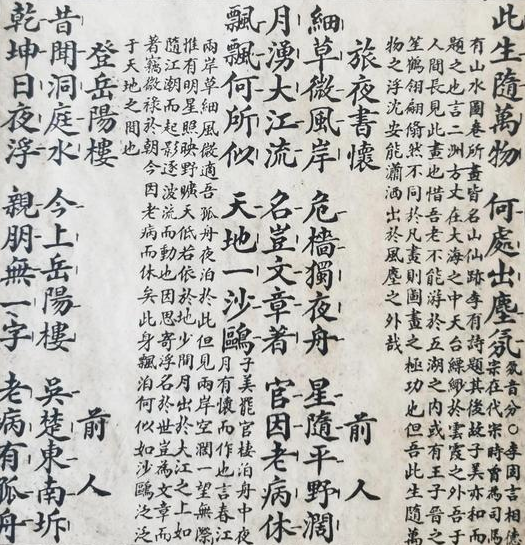 此生隨萬物 何處出塵氛
氛音分○李固言相德
宗在代宗時曾爲司馬
有山水圖卷所畫皆名山仙跡李有詩題其後故子美亦和而
題之也言二洲方丈在大海之中天台縹緲於雲霞之外吾于
人間長見此畫也惜吾老不能游於五湖之內或有王子晉之
笙鶴翩翩翛然不同於凡畫則圖畫之極功也但吾此生隨萬
物之浮沈安能瀟洒出於風塵之外哉
旅夜書懷 前人
細草微風岸 危檣獨夜舟 星隨平野濶
月湧大江流 名豈文章著 官因老病休
飄飄何所似 天地一沙鷗
子美罷官棲泊舟中夜
月有懷而作也言春江
兩岸草細風微適吾孤舟夜泊於此但見兩岸空濶一望無際
惟有明星照映野曠天低若依於地少間月出於大江之上如
隨江潮而起影逐波流而動也因思寄浮名於世豈爲文章而
著竊微祿於朝今因老病而休矣此身飄泊何似如沙鷗泛泛
於天地之間也
登岳陽樓 前人
昔聞洞庭水 今上岳陽樓 吳楚東南坼
乾坤日夜浮 親朋無一字 老病有孤舟